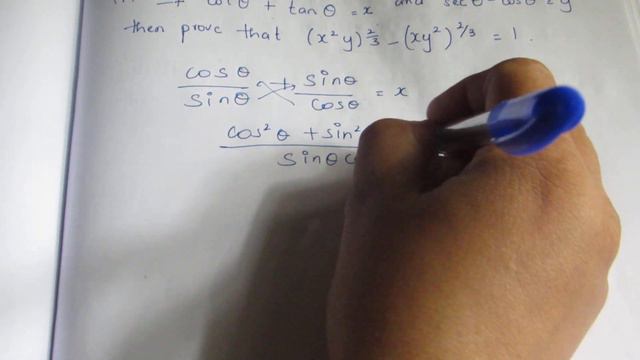 cotθ + tanθ = x and secθ - cosθ = y
then prove that (x²y)^2/3 - (xy²)^2/3 = 1.
cosθ/sinθ + sinθ/cosθ = x
cos²θ + sin²/sinθ